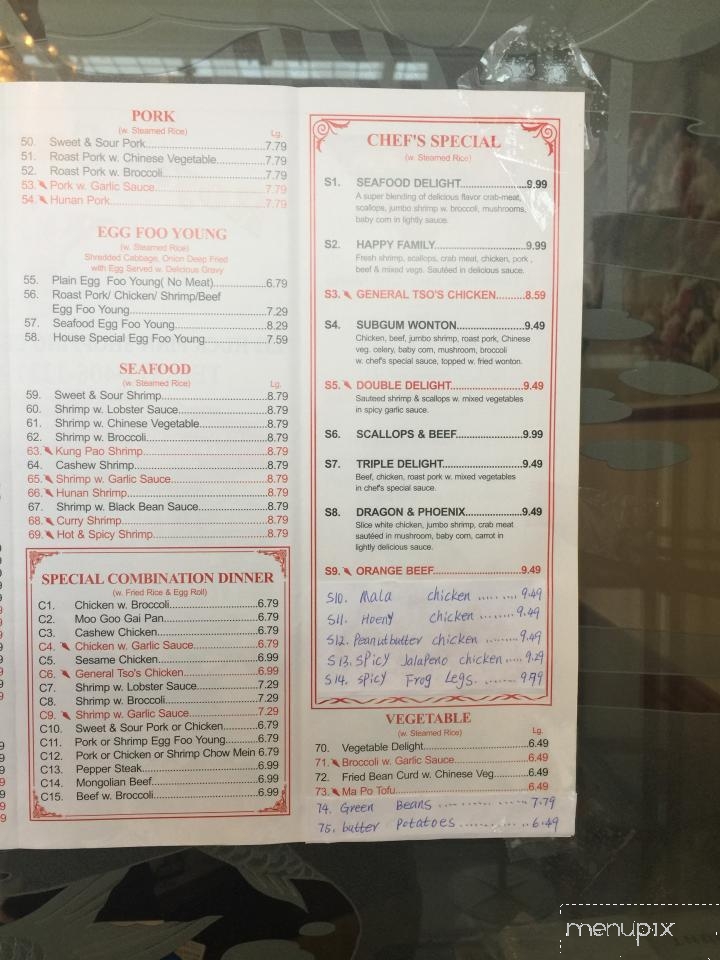 PORK
(w. Steamed Rice)
Lg.
50. Sweet & Sour Pork 7.79
51. Roast Pork w. Chinese Vegetable 7.79
52. Roast Pork w. Broccoli 7.79
53. Pork w. Garlic Sauce 7.79
54. Hunan Pork 7.79
EGG FOO YOUNG
(w. Steamed Rice)
Shredded Cabbage, Onion Deep Fried
with Egg Served w. Delicious Gravy
55. Plain Egg Foo Young( No Meat) 6.79
56. Roast Pork/ Chicken/ Shrimp/Beef
Egg Foo Young 7.29
57. Seafood Egg Foo Young 8.29
58. House Special Egg Foo Young 7.59
SEAFOOD
(w. Steamed Rice)
Lg.
59. Sweet & Sour Shrimp 8.79
60. Shrimp w. Lobster Sauce 8.79
61. Shrimp w. Chinese Vegetable 8.79
62. Shrimp w. Broccoli 8.79
63. Kung Pao Shrimp 8.79
64. Cashew Shrimp 8.79
65. Shrimp w. Garlic Sauce 8.79
66. Hunan Shrimp 8.79
67. Shrimp w. Black Bean Sauce 8.79
68. Curry Shrimp 8.79
69. Hot & Spicy Shrimp 8.79
SPECIAL COMBINATION DINNER
(w. Fried Rice & Egg Roll)
C1. Chicken w. Broccoli 6.79
C2. Moo Goo Gai Pan 6.79
C3. Cashew Chicken 6.79
C4. Chicken w. Garlic Sauce 6.79
C5. Sesame Chicken 6.99
C6. General Tso's Chicken 6.99
C7. Shrimp w. Lobster Sauce 7.29
C8. Shrimp w. Broccoli 7.29
C9. Shrimp w. Garlic Sauce 7.29
C10. Sweet & Sour Pork or Chicken 6.79
C11. Pork or Shrimp Egg Foo Young 6.79
C12. Pork or Chicken or Shrimp Chow Mein 6.79
C13. Pepper Steak 6.99
C14. Mongolian Beef 6.99
C15. Beef w. Broccoli 6.99
CHEF'S SPECIAL
(w. Steamed Rice)
S1. SEAFOOD DELIGHT 9.99
A super blending of delicious flavor crab-meat,
scallops, jumbo shrimp w. broccoli, mushrooms,
baby corn in lightly sauce.
S2. HAPPY FAMILY 9.99
Fresh shrimp, scallops, crab meat, chicken, pork ,
beef & mixed vegs. Sautéed in delicious sauce.
S3. GENERAL TSO'S CHICKEN 8.59
S4. SUBGUM WONTON 9.49
Chicken, beef, jumbo shrimp, roast pork, Chinese
veg. celery, baby corn, mushroom, broccoli
w. chef's special sauce, topped w. fried wonton.
S5. DOUBLE DELIGHT 9.49
Sauteed shrimp & scallops w. mixed vegetables
in spicy garlic sauce.
S6. SCALLOPS & BEEF 9.99
S7. TRIPLE DELIGHT 9.49
Beef, chicken, roast pork w. mixed vegetables
in chef's special sauce.
S8. DRAGON & PHOENIX 9.49
Slice white chicken, jumbo shrimp, crab meat
sautéed in mushroom, baby corn, carrot in
lightly delicious sauce.
S9. ORANGE BEEF 9.49
S10. Mala chicken 9.49
S11. Hoeny chicken 9.49
S12. Peanutbutter chicken 9.49
S13. SPicy Jalapeno chicken 9.29
S14. SPicy Frog Legs. 9.79
VEGETABLE
(w. Steamed Rice)
Lg.
70. Vegetable Delight 6.49
71. Broccoli w. Garlic Sauce 6.49
72. Fried Bean Curd w. Chinese Veg 6.49
73. Ma Po Tofu 6.49
74. Green Beans 7.79
75. butter Potatoes 6.49
menupix